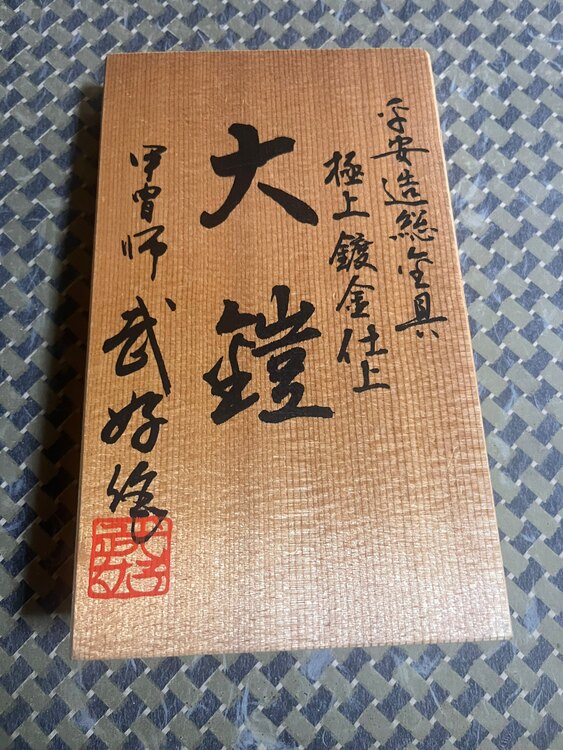 平安造総金具
極上鍍金仕上
大鎧
甲冑師 武好作
武好